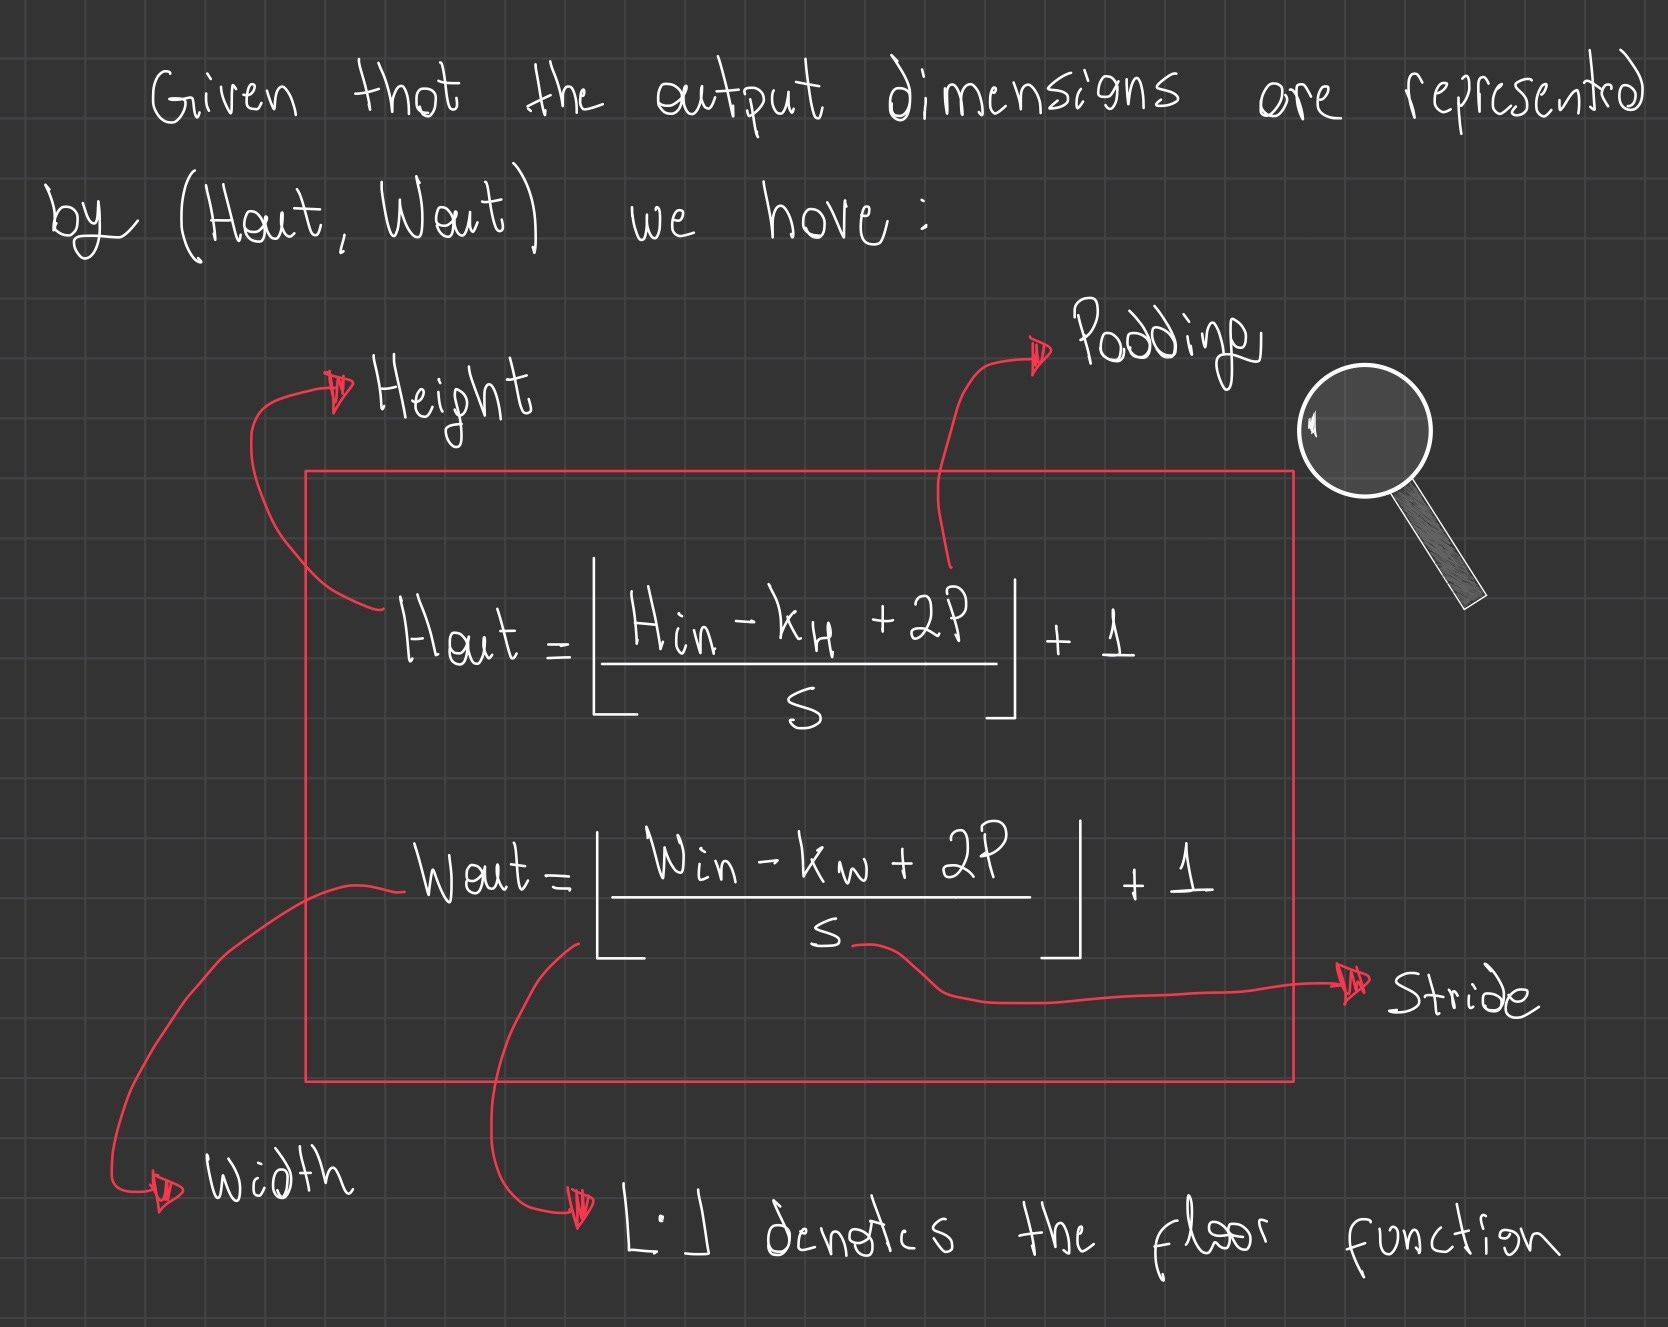 Given that the output dimensions are represented
by (Hout, Wout) we have:
Padding
Height
Hout = ⌊(Hin - kH + 2P) / S⌋ + 1
Wout = ⌊(Win - kW + 2P) / S⌋ + 1
Stride
Width
⌊·⌋ denotes the floor function